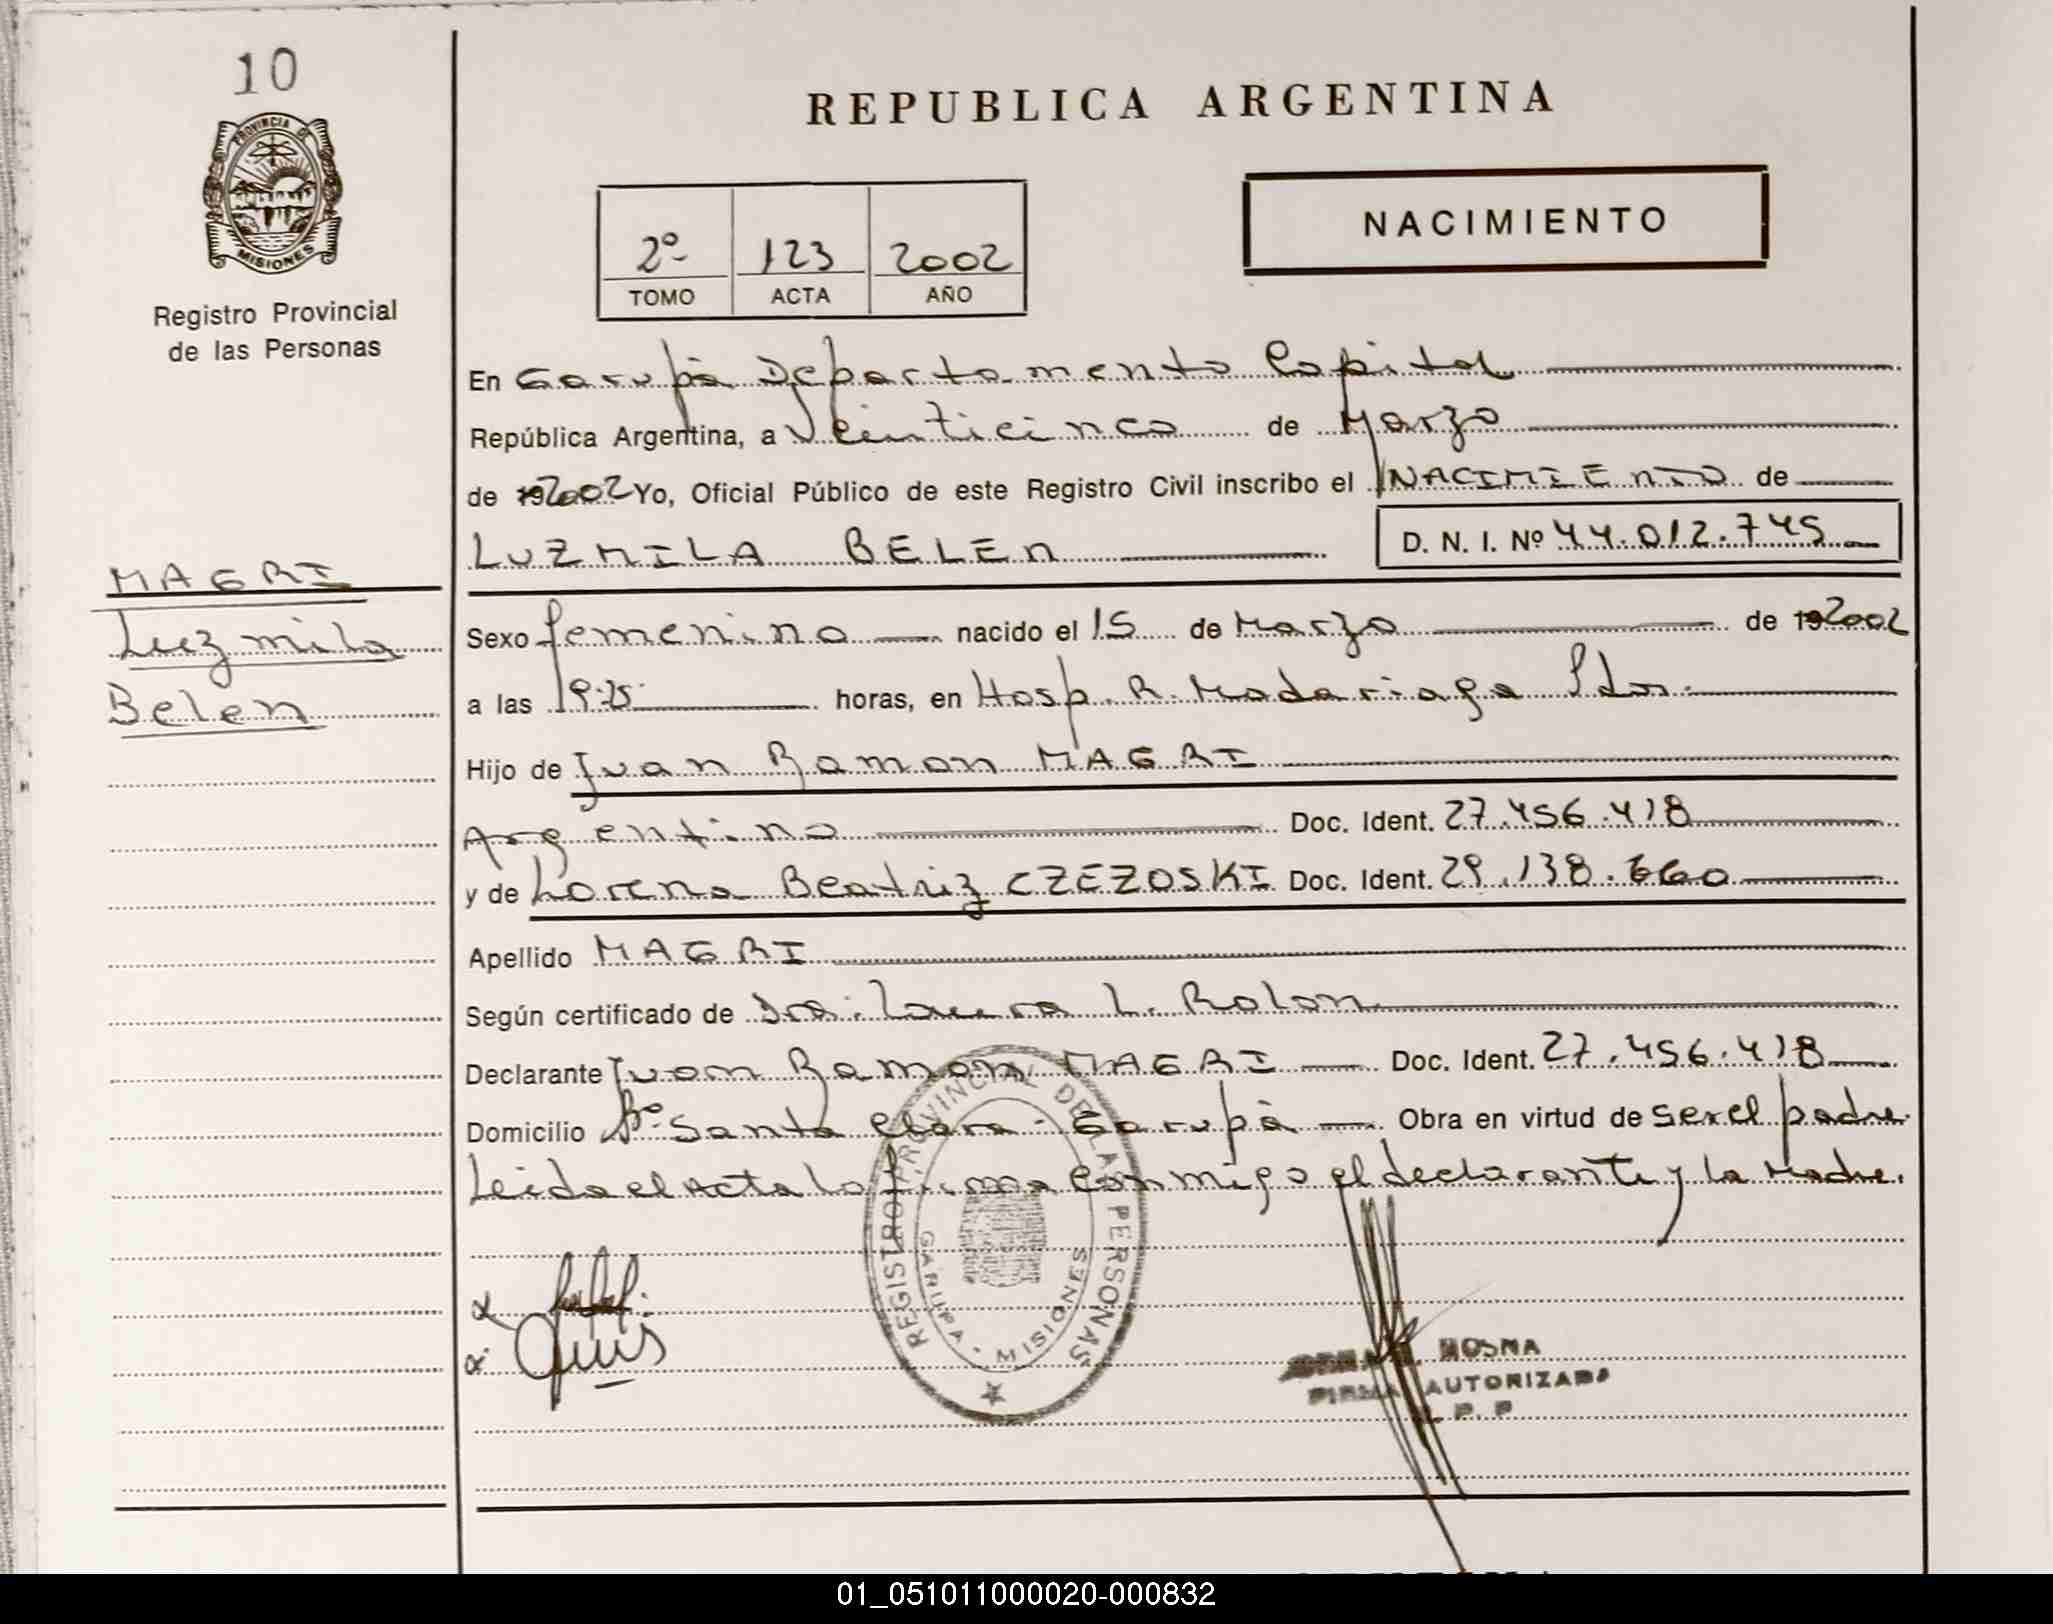 10
PROVINCIA DE
MISIONES
Registro Provincial
de las Personas
REPUBLICA ARGENTINA
2º 123 2002
TOMO ACTA AÑO
NACIMIENTO
En Garupà Departamento Capital
República Argentina, a Veinticinco de Marzo
de 192002 Yo, Oficial Público de este Registro Civil inscribo el NACIMIENTO de
LUZMILA BELEN D. N. I. Nº 44.012.745
MAGRI
Luzmila
Belen
Sexo femenino nacido el 15 de Marzo de 192002
a las 19:25 horas, en Hosp. R. Madariaga Pdas.
Hijo de Juan Ramon MAGRI
Argentino Doc. Ident. 27.456.418
y de Lorena Beatriz CZEZOSKI Doc. Ident. 29.138.660
Apellido MAGRI
Según certificado de Dra. Laura L. Rolon
Declarante Juan Ramon MAGRI Doc. Ident. 27.456.418
Domicilio Bº Santa Clara - Garupà Obra en virtud de ser el padre
Leida el Acta la firma conmigo el declarante y la Madre.
REGISTRO PROVINCIAL DE LAS PERSONAS
GARUPA - MISIONES
MOSNA
FIRMA AUTORIZADA
R. P. P
01_051011000020-000832